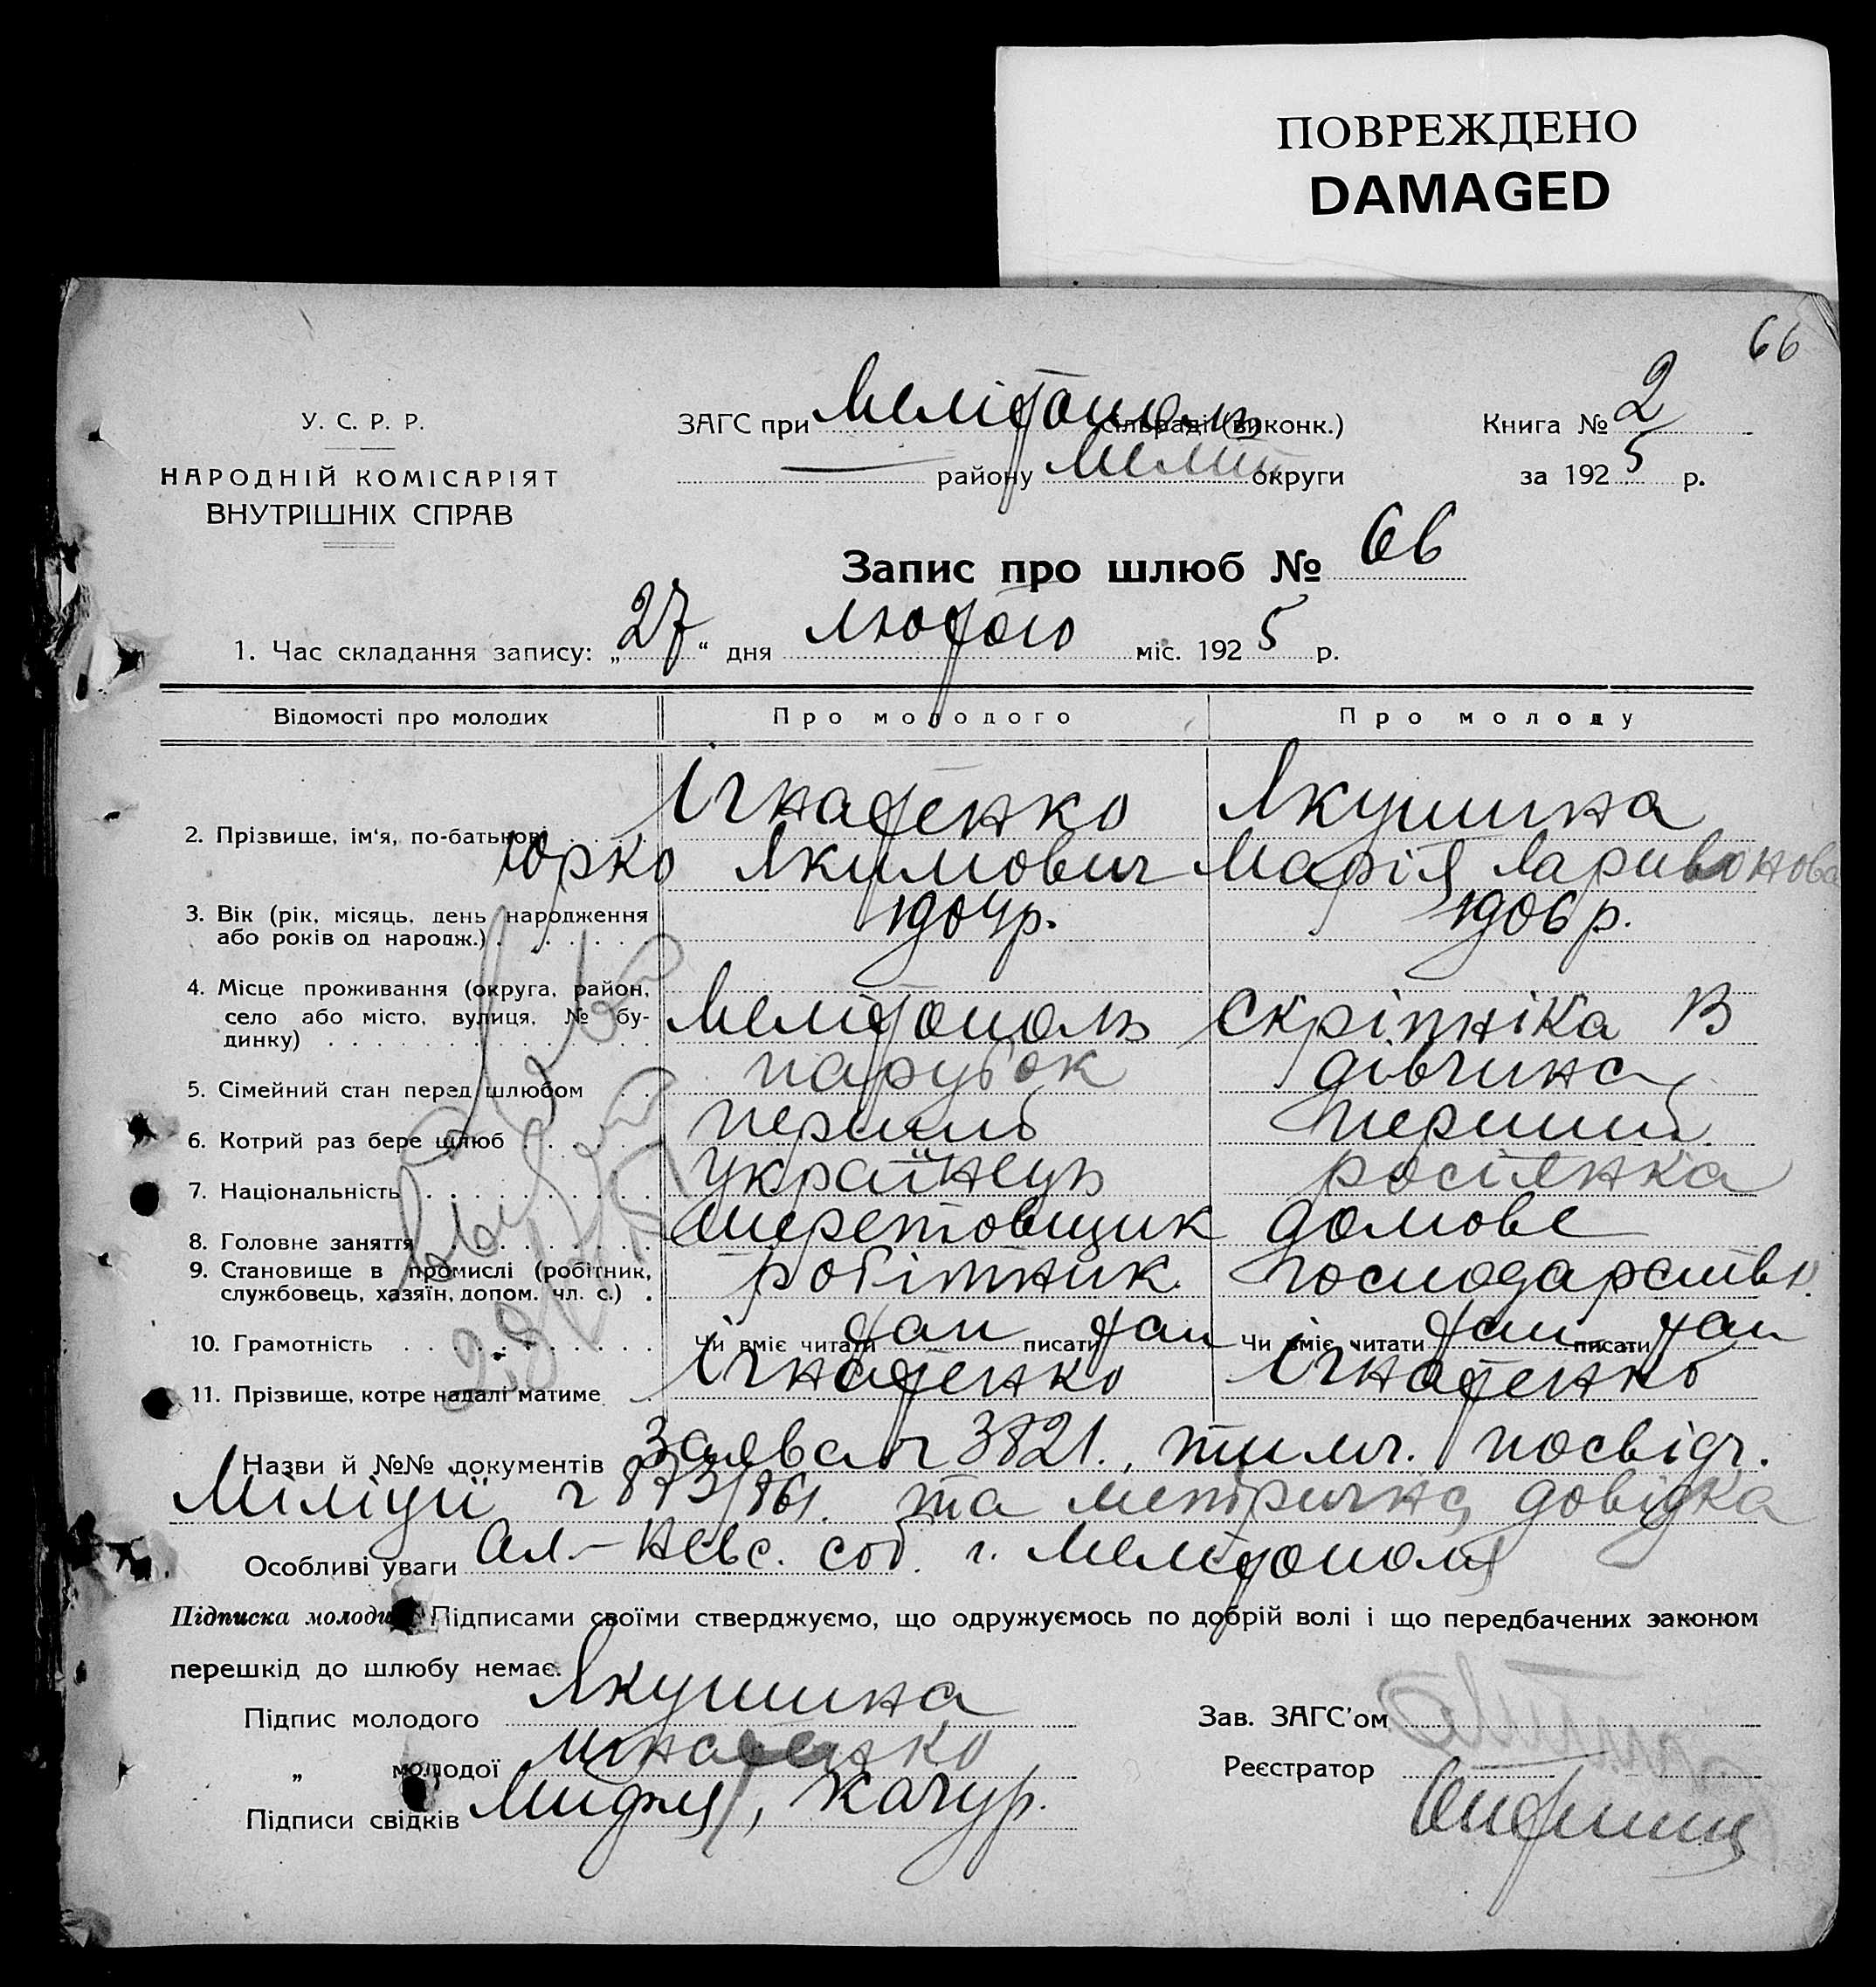 ПОВРЕЖДЕНО
DAMAGED
66
У. С. Р. Р.
НАРОДНІЙ КОМІСАРІЯТ
ВНУТРІШНІХ СПРАВ
ЗАГС при Мелітополь сільраді (виконк.)
району Мелит округи
Книга № 2
за 1925 р.
Запис про шлюб № 66
1. Час складання запису: „27“ дня лютого міс. 1925 р.
Відомості про молодих Про молодого Про молоду
2. Прізвище, ім'я, по-батькові Ігнатенко Юрко Якимович Якушина Марія Ларивонова
3. Вік (рік, місяць, день народження або років од народж.) 1904р. 1906р.
4. Місце проживання (округа, район, село або місто, вулиця, № будинку) Мелітополь Скріпніка 13
5. Сімейний стан перед шлюбом парубок дівчина
6. Котрий раз бере шлюб перший перший
7. Національність українець росіянка
8. Головне заняття домове
9. Становище в промислі (робітник, службовець, хазяїн, допом. чл. с.) робітник господарство.
10. Грамотність Чи вміє читати так писати так Чи вміє читати так писати так
11. Прізвище, котре надалі матиме Ігнатенко Ігнатенко
Назви й №№ документів Заява ч 3821., тимч. посвідч.
Міліції ч 873/861. та метрична довідка
Особливі уваги Ал.-Невс. соб. г. Мелітополя
Підписка молодих Підписами своїми стверджуємо, що одружуємось по добрій волі і що передбачених законом
перешкід до шлюбу немає.
Підпис молодого Якушина
„ молодої Игнатенко
Підписи свідків Качур.
Зав. ЗАГС'ом
Реєстратор